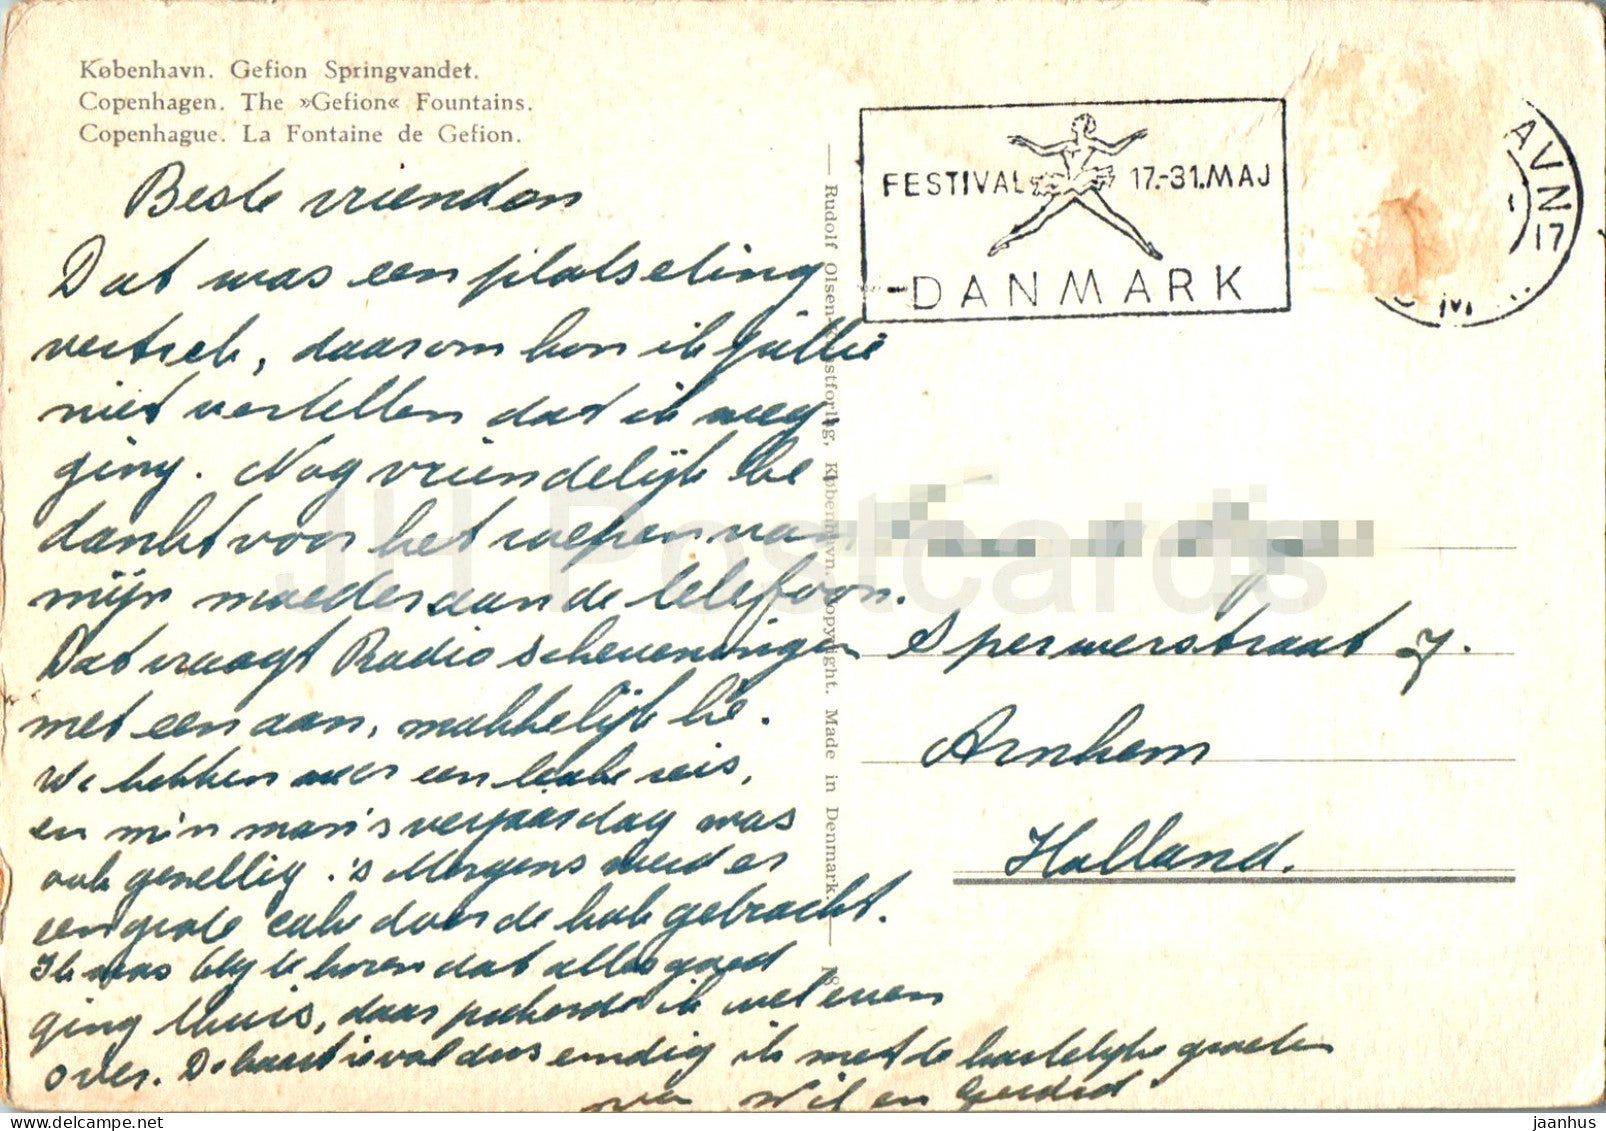 København. Gefion Springvandet.
Copenhagen. The »Gefion« Fountains.
Copenhague. La Fontaine de Gefion.
Beste vrienden
Dat was een plotseling
vertrek, daarom kon ik jullie
niet vertellen dat ik weg
ging. Nog vriendelijk be
dankt voor het roepen van
mijn moeder aan de telefoon.
Dat vraagt Radio Scheveningen
met een aan, makkelijk hè.
We hebben weer een leuke reis,
en m'n man's verjaardag was
ook gezellig. 's Morgens werd er
een grote cake door de kok gebracht.
Ik was blij te horen dat alles goed
ging thuis, daar piekerde ik wel even
over. De kaart is vol dus eindig ik met de hartelijke groeten
van Wil en Gerard
Rudolf Olsen Kunstforlag, København. Copyright. Made in Denmark
FESTIVAL 17.-31.MAJ
DANMARK
AVN
17
Sperwerstraat 7.
Arnhem
Holland.
JH Postcards
jaanhus